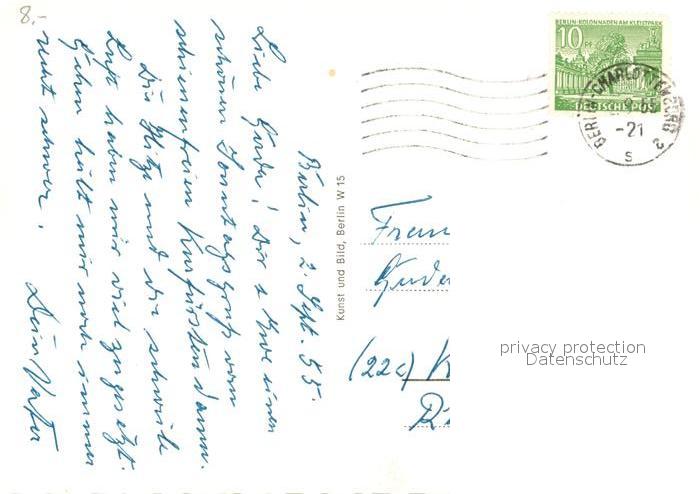 8,-
Berlin, 2. Sept. 55.
Liebe Gerda! Dir + Uwe einen
schönen Sonntagsgruß vom
schienenfreien Kurfürstendamm.
Die Hitze und die schwüle
Luft haben mir viel zugesetzt.
Gehen fällt mir noch immer
recht schwer.
Dein Vater
Kunst und Bild, Berlin W 15
BERLIN-KOLONNADEN AM KLEISTPARK
10 PF
DEUTSCHE POST
BERLIN-CHARLOTTENBURG 2
-21
s
(22c) K
privacy protection
Datenschutz